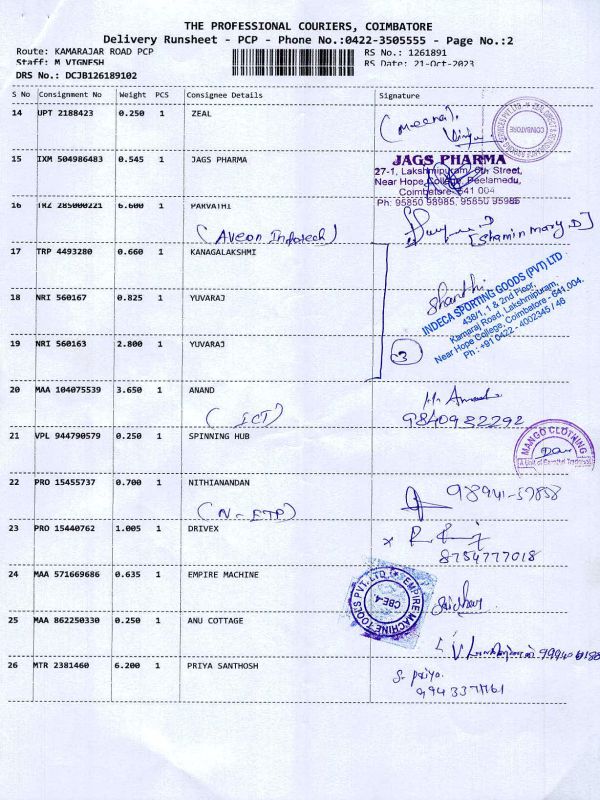 THE PROFESSIONAL COURIERS, COIMBATORE
Delivery Runsheet - PCP - Phone No.:0422-3505555 - Page No.:2
Route: KAMARAJAR ROAD PCP
RS No.: 1261891
Staff: M VIGNESH
RS Date: 21-Oct-2023
DRS No.: DCJB126189102
S No Consignment No Weight PCS Consignee Details Signature
14 UPT 2188423 0.250 1 ZEAL
(Meena).
COIMBATORE
15 IXM 504986483 0.545 1 JAGS PHARMA
JAGS PHARMA
27-1, Lakshmipuram, 6th Street,
Near Hope College, Peelamedu,
Coimbatore-641 004
Ph: 95850 98985, 95850 95986
16 TRZ 285000221 6.600 1 PARVATHI
(Aveon Infotech)
[Shamin Mary.D]
17 TRP 4493280 0.660 1 KANAGALAKSHMI
18 NRI 560167 0.825 1 YUVARAJ
Shanthi
INDECA SPORTING GOODS (PVT) LTD
438/1, 1 & 2nd Floor,
Kamaraj Road, Lakshmipuram,
Near Hope College, Coimbatore - 641 004.
Ph : +91 0422 - 4002345 / 46
19 NRI 560163 2.800 1 YUVARAJ
3
20 MAA 104075539 3.650 1 ANAND
(ICT)
9840932292
21 VPL 944790579 0.250 1 SPINNING HUB
MANGO CLOTHING
22 PRO 15455737 0.700 1 NITHIANANDAN
(N-ETP)
98941-57858
23 PRO 15440762 1.005 1 DRIVEX
8754777018
24 MAA 571669686 0.635 1 EMPIRE MACHINE
EMPIRE MACHINE TOOLS PVT. LTD.
CBE-4
Sridhar
25 MAA 862250330 0.250 1 ANU COTTAGE
26 MTR 2381460 6.200 1 PRIYA SANTHOSH
S. priya.